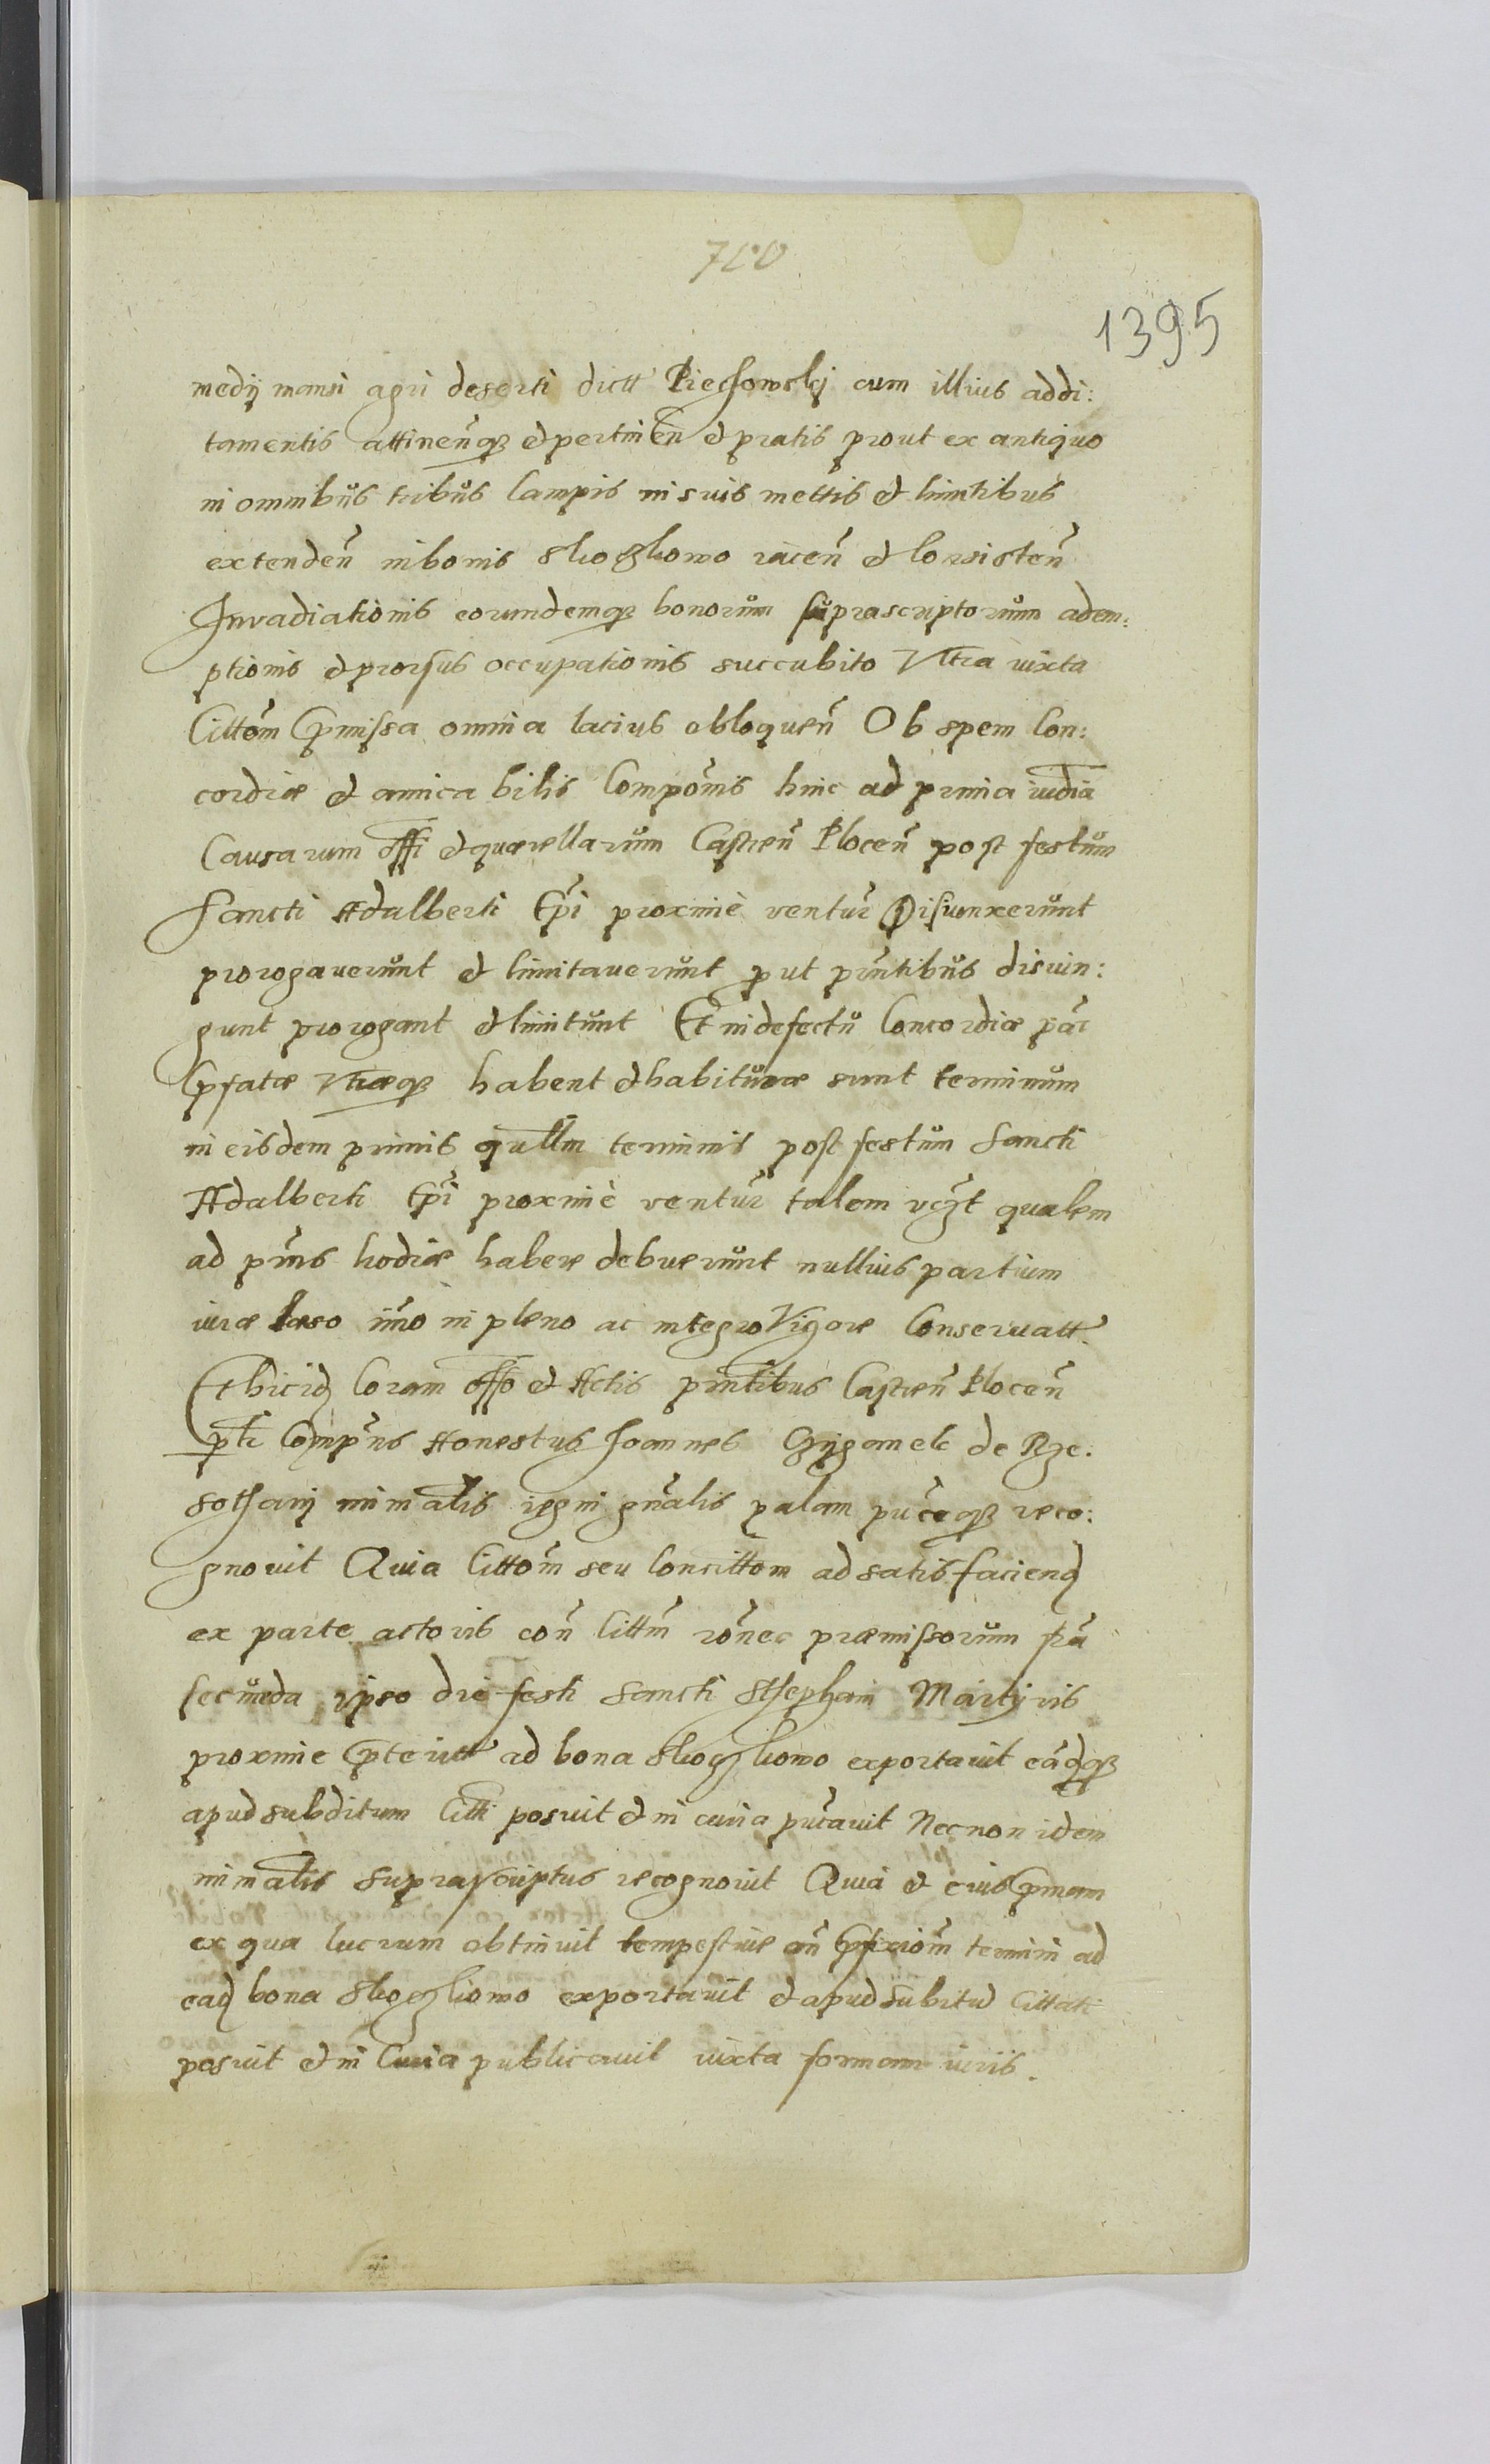 700
1395
medij mansi agri deserti dictt Piechowskj cum illius addi:
tamentis attinen̄q₃ et pertinen̄ et pratis prout ex antiquo
in omnibus tribus Campis in suis mettis et limitibus
extenden̄ in bonis Skoczkowo iacen̄ et Consisten̄
Invadiationis eorundemq₃ bonorum suprascriptorum adem:
ptionis et prorsus occupationis succubito Vltra iuxta
Citto͞m p̄missa omnia lacius obloquen̄ Ob spem Con:
cordiæ et amicabilis Compo͞nis hinc ad prima iudia
Causarum offi et quærellarum Castren̄ Plocen̄ post festum
Sancti Adalberti Ep̄i proxime̍ ventur̄ Disiunxerunt
prorogauerunt et limitauerunt put pn̄tibus disiun:
gunt prorogant et limitunt Et in defectu Concordiæ par̄
p̄fatæ vtræq₃ habent et habituræ sunt terminum
in eisdem primis qu̅llm terminis post festum Sancti
Adalberti Ep̄i proxime̍ ventur̄ talem vc̄zt qualem
ad pn̄s hodiæ habere debuerunt nullius partium
iuræ læso im̄o in pleno ac integro Vigore Conseruatt.
Et hicid Coram offo et Actis pn̄tibus Castren̄ Plocen̄
p̄tr Comp̄ns Honestus Joannes Grzganek de Rze:
sotharÿ min̄alis regni gn̄alis palam pu͞ceq₃ reco:
gnouit Quia Citto͞m seu Concittom ad satisfaciend
ex parte actoris con̄ Citt͞m ro͞nec præmissorum fr̄a
secunda ipso die festi Sancti Stephani Martÿris
proxime p̄teritt ad bona Skoczkowo exportauit eādq₃
apud subditum Citti posuit et in curia pu͞cauit Necnon idem
min̄alis suprascriptus recognouit Quia et eius p̄mam
ex qua lucrum obtinuit tempestiue an̄ p̄fixio͞m termini ad
ead bona Skoczkowo exportauit et apud subitud Cittati
posuit et in Curia publicauit iuxta formam iuris.